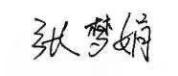 张梦娟